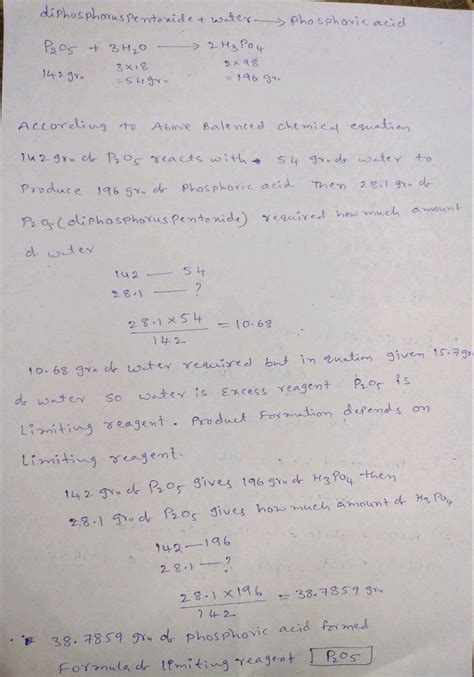 diphosphorus pentoxide + water ⟶ Phosphoric acid
P₂O₅ + 3H₂O ⟶ 2H₃PO₄
142 gm 3×18 2×98
= 54 gm = 196 gm
According to Above Balenced chemical equation
142 gm of P₂O₅ reacts with 54 gm of water to
Produce 196 gm of Phosphoric acid. Then 28.1 gm of
P₂O₅ (diphosphorus pentoxide) required how much amount
of water
142 — 54
28.1 — ?
28.1 × 54 / 142 = 10.68
10.68 gm of water required but in quetion given 15.7 gm
of water so water is Excess reagent P₂O₅ is
Limiting reagent. Product Formation depends on
Limiting reagent.
142 gm of P₂O₅ gives 196 gm of H₃PO₄ then
28.1 gm of P₂O₅ gives how much amount of H₃PO₄
142 — 196
28.1 — ?
28.1 × 196 / 142 = 38.7859 gm
38.7859 gm of phosphoric acid formed
Formula of limiting reagent P₂O₅